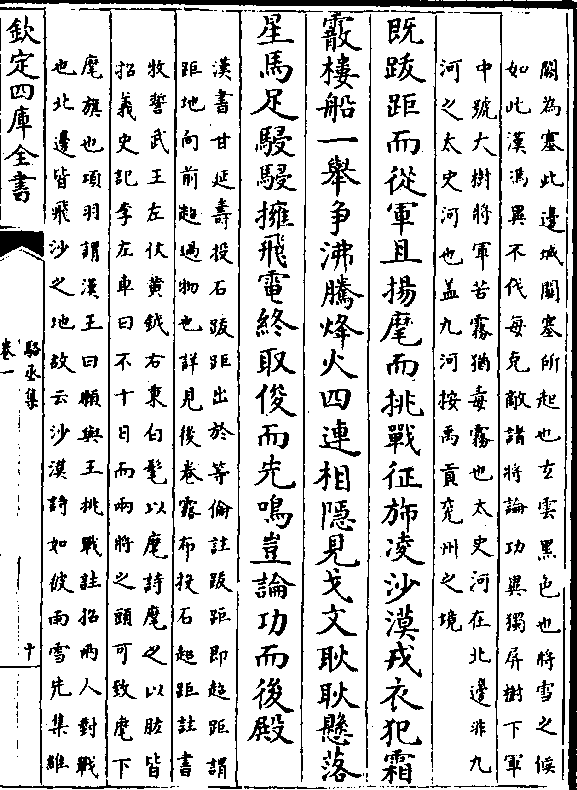 關為塞此邊城關塞所起也玄雲黑色也將雪之候
如此漢馮異不伐每克敵諸將論功異獨屏樹下軍
中號大樹將軍苦霧猶毒霧也太史河在北邊非九
河之太史河也盖九河按禹貢兖州之境
既跋距而從軍且揚麾而挑戰征斾凌沙漠戎衣犯霜
霰樓船一舉争沸騰烽火四連相隱見戈文耿耿懸落
星馬足駸駸擁飛電終取俊而先鳴豈論功而後殿
漢書甘延壽投石跋距出於等倫註跋距即超距謂
距地向前超過物也詳見後卷露布投石超距註書
牧誓武王左仗黄鉞右秉白髦以麾詩麾之以肱皆
招義史記李左車曰不十日而兩將之頭可致麾下
麾旗也項羽謂漢王曰願與王挑戰註招兩人對戰
也北邊皆飛沙之地故云沙漠詩如彼雨雪先集維
欽定四庫全書
駱丞集
卷一
十